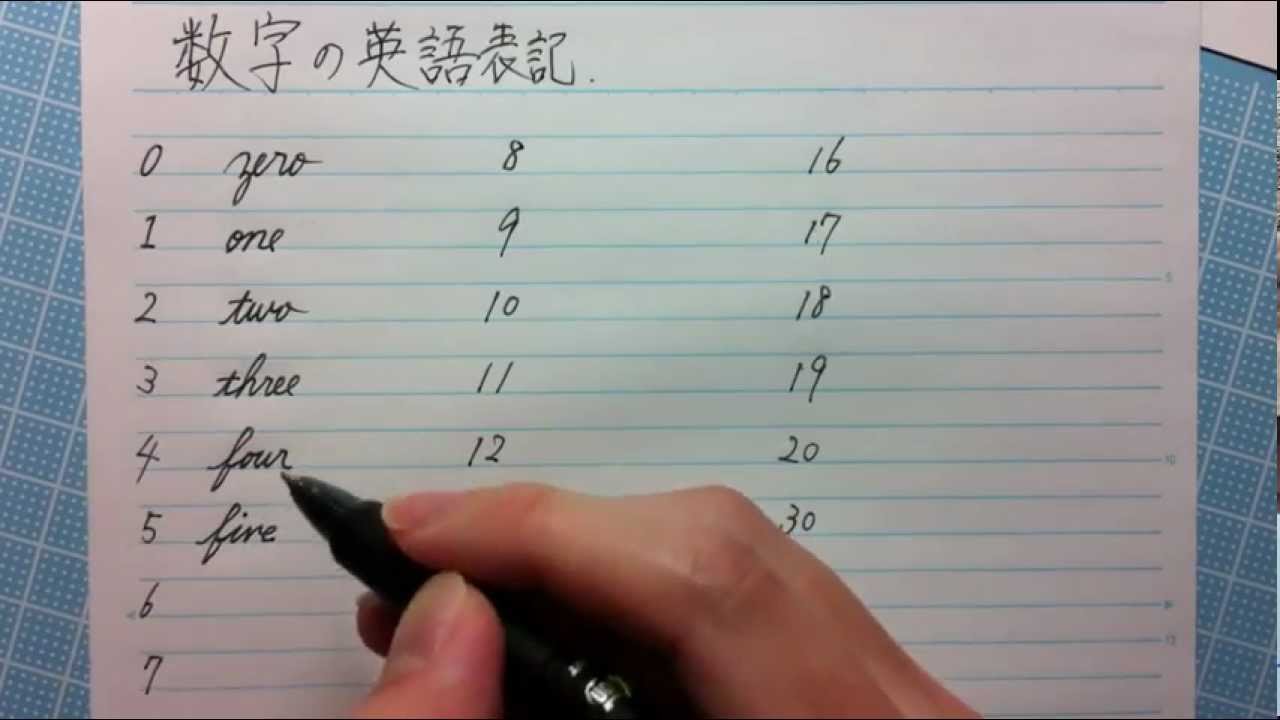 数字の英語表記.
0 zero 8 16
1 one 9 17
2 two 10 18
3 three 11 19
4 four 12 20
5 five 30
6
7